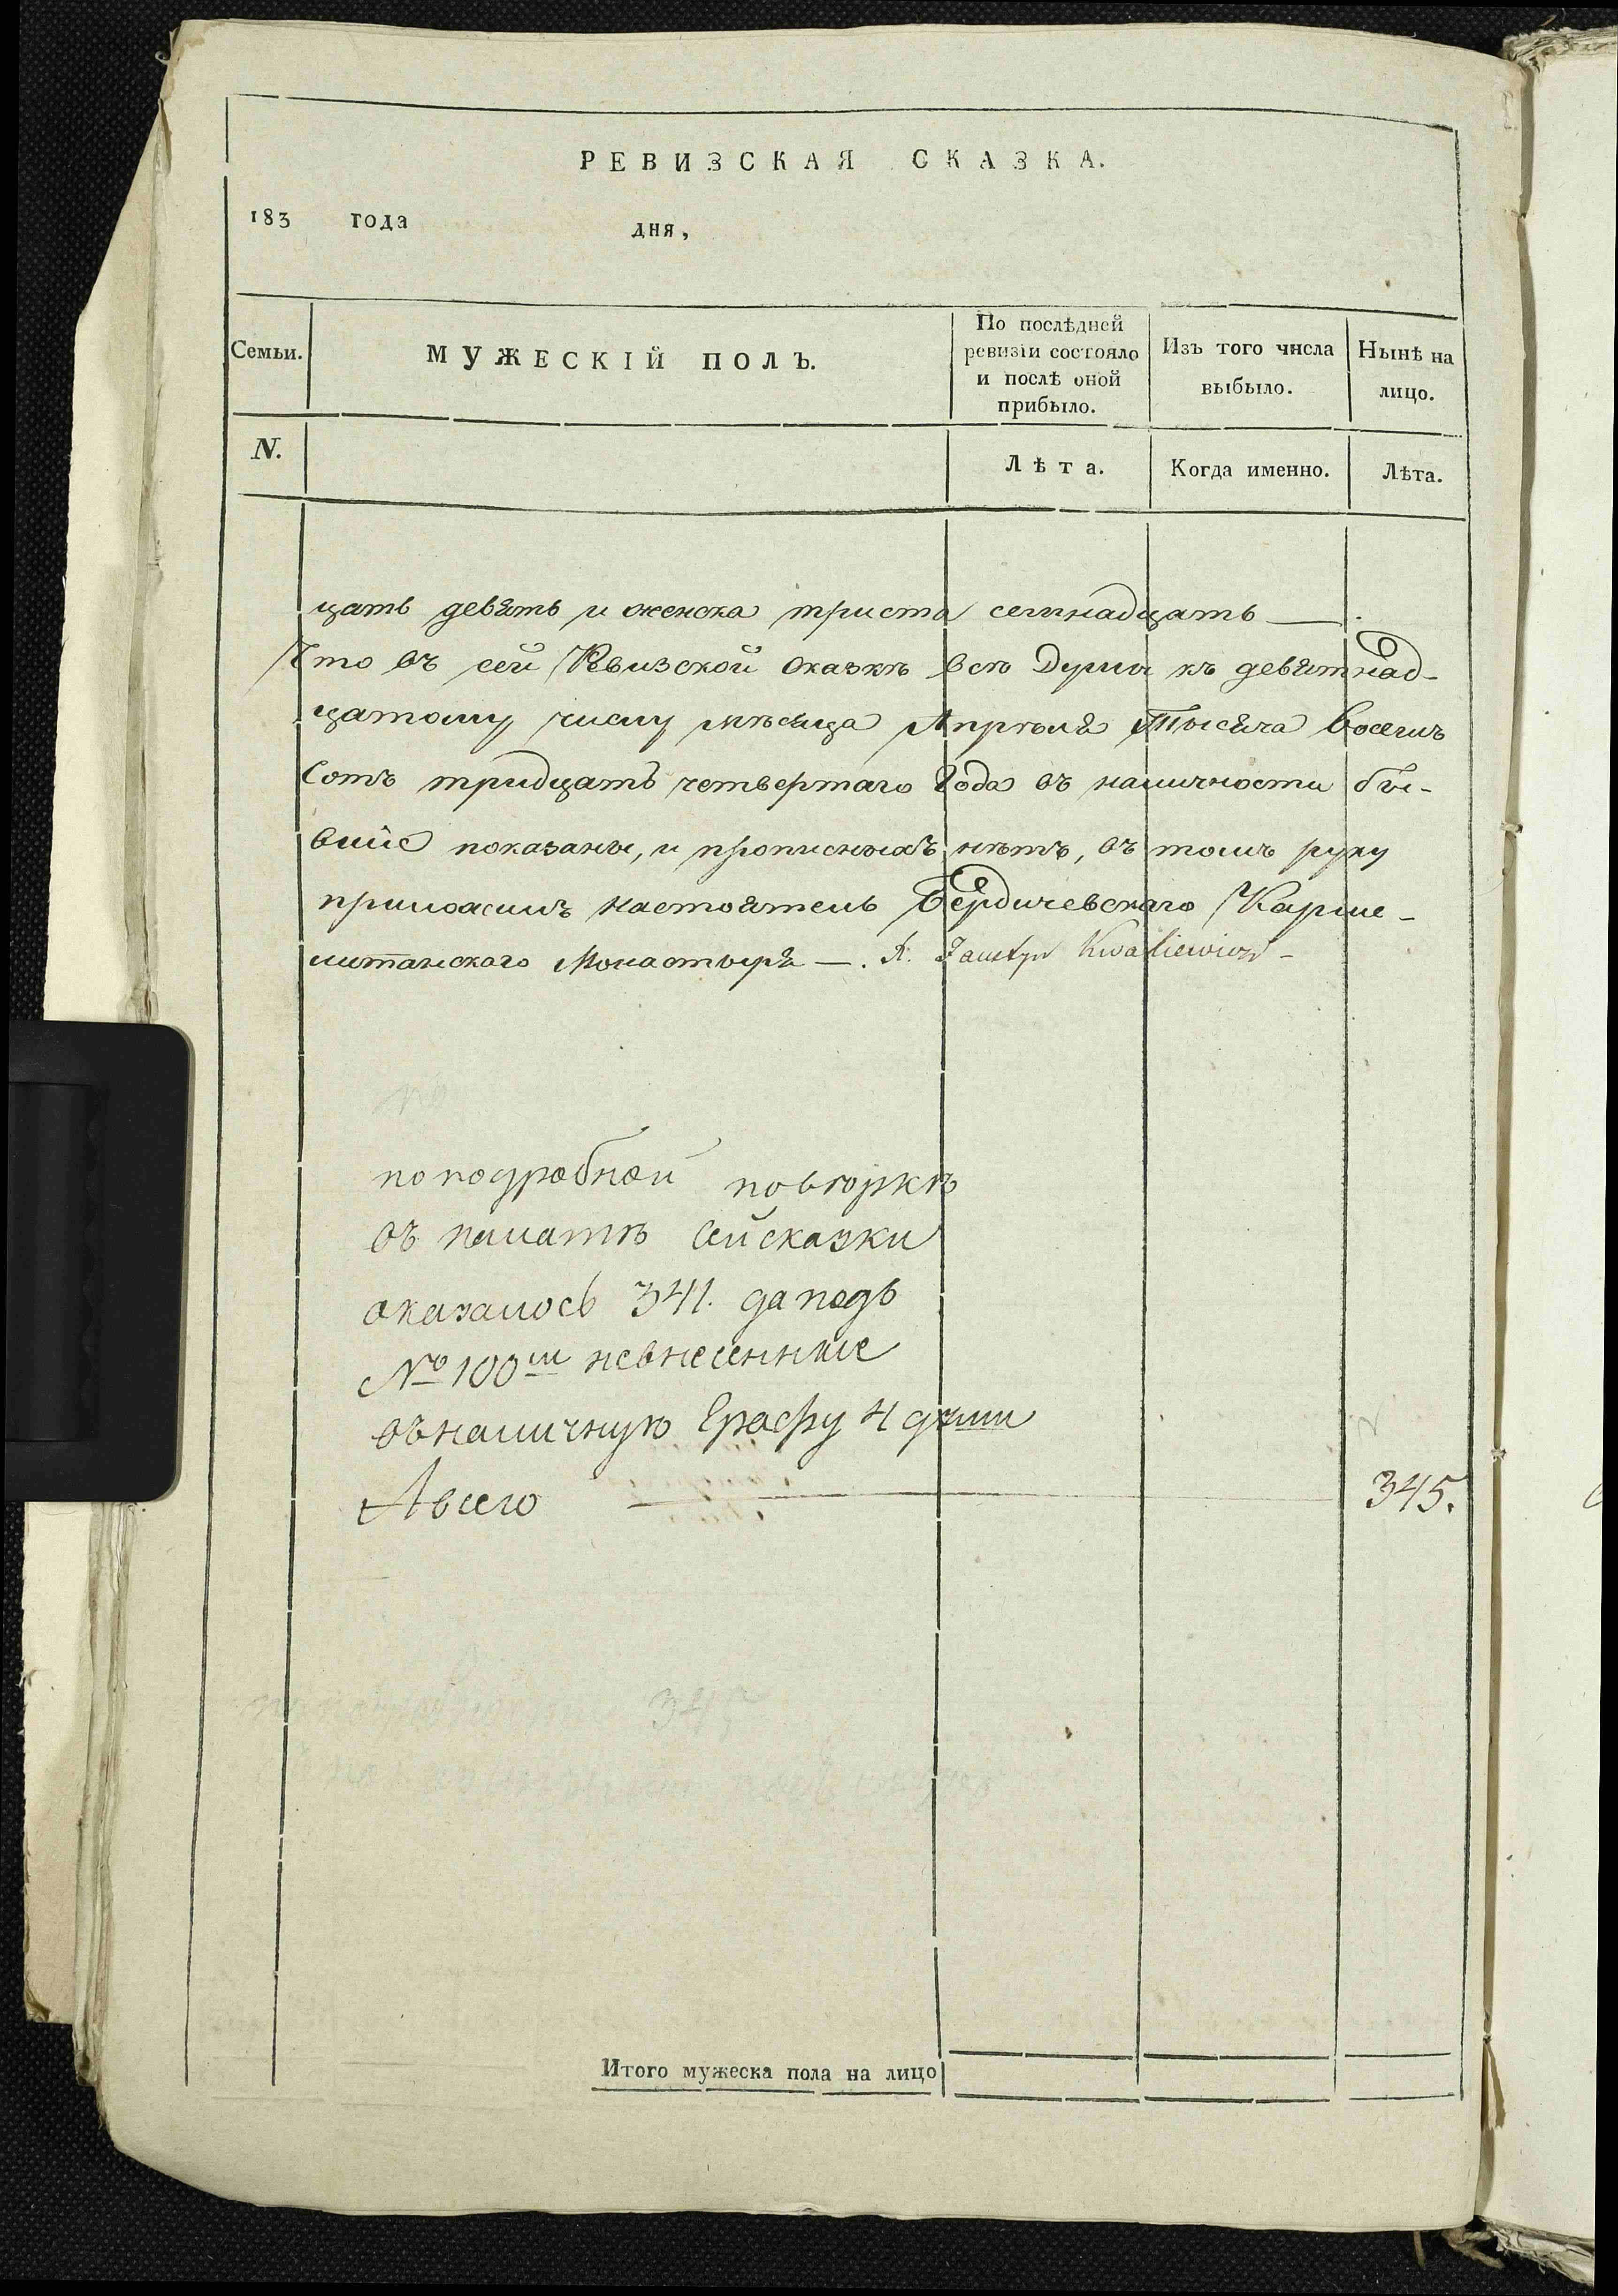 РЕВИЗСКАЯ СКАЗКА.
183 года дня,
Семьи.
МУЖЕСКІЙ ПОЛЪ.
По послѣдней ревизіи состояло и послѣ оной прибыло.
Изъ того числа выбыло.
Нынѣ на лицо.
N.
Лѣта.
Когда именно.
Лѣта.
цать девять и женска триста семнадцать —.
Что въ сей Ревизской сказкѣ всѣ Души къ девятнад-
цатому числу мѣсяца Апрѣля Тысяча восемъ
сотъ тридцать четвертаго Года въ наличности бы-
вшие показаны, и прописныхъ нѣтъ, въ томъ руку
приложилъ настоятель Бердичевскаго Карме-
литанскаго Монастыря —. X.
по подробной повѣркѣ
въ палатѣ сей сказки
оказалось 341. да подъ
№ 100м невнесенные
въ наличную Графу 4 души
А всего 345.
Итого мужеска пола на лицо